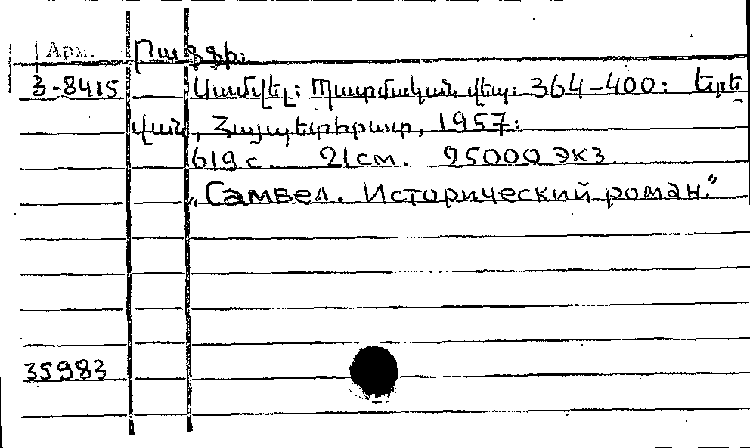 Арм. Րաֆֆի.
3-8415 Սամվել: Պատմական վեպ. 364-400: Երե
վան, Հայպետհրատ, 1957:
619 с. 21 см. 25000 экз.
"Самвел. Исторический роман."
35983